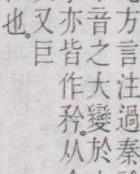 方言注過秦
音之大變於
亦皆作矜。从
又巨
也。